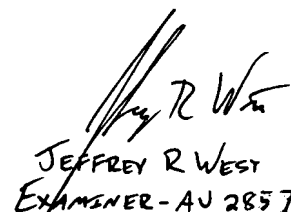 Jeffrey R West
JEFFREY R WEST
EXAMINER - AU 2857